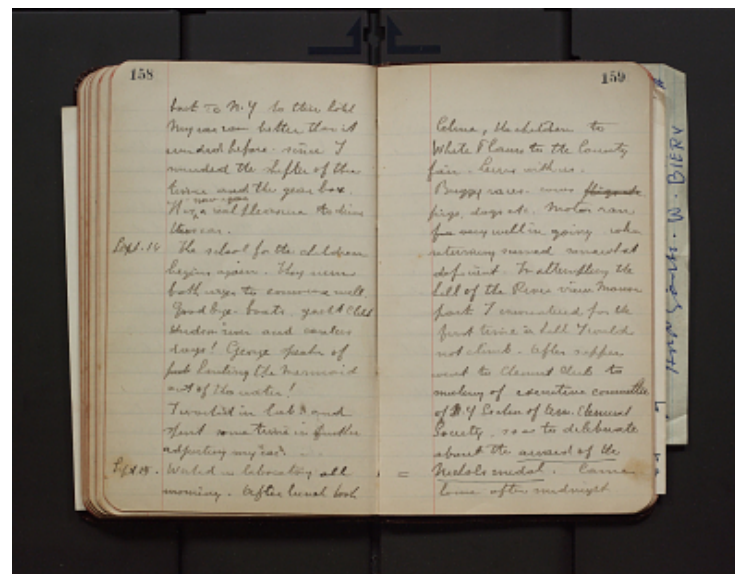 158
back to N.Y to this hotel
My car ran better than it
ever did before - since I
mounded the shifter of the
and the gear box.
It is now again a real pleasure to drive
this car.
Sept. 14 The school for the children
begins again. They were
both up to commence well.
Goodbye boats, yacht Club
Hudson river and
days! George speaks of
hauling the Mermaid
out of the water!
I worked in lab. and
spent some time in further
adjusting my car.
Sept 15. Worked in laboratory all
morning. After lunch took
159
Celine, the children to
White Plains to the County
fair. with us.
Buggy races - cows
pigs, dogs etc. Motor ran
very well in going. when
returning seemed somewhat
deficient. In attempting the
hill of the River view Manor
park I encountered for the
first time a hill I could
not climb. After supper
went to Chemist Club to
meeting of executive committee
of N.Y Section of Am. Chemical
Society, so as to deliberate
about the award of the
Nichols medal. Came
home after midnight
W. BIERY